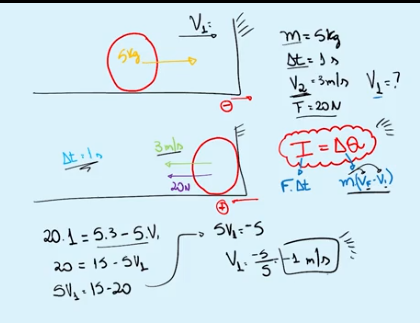 V₁=
5kg
⊖
m = 5kg
Δt = 1s
V₂ = 3m/s V₁ = ?
F = 20N
Δt = 1s
3m/s
20N
⊕
I = ΔQ
F.Δt m(V_F - V_i)
20.1 = 5.3 - 5.V₁
20 = 15 - 5V₁
5V₁ = 15 - 20
5V₁ = -5
V₁ = -5/5 = -1 m/s